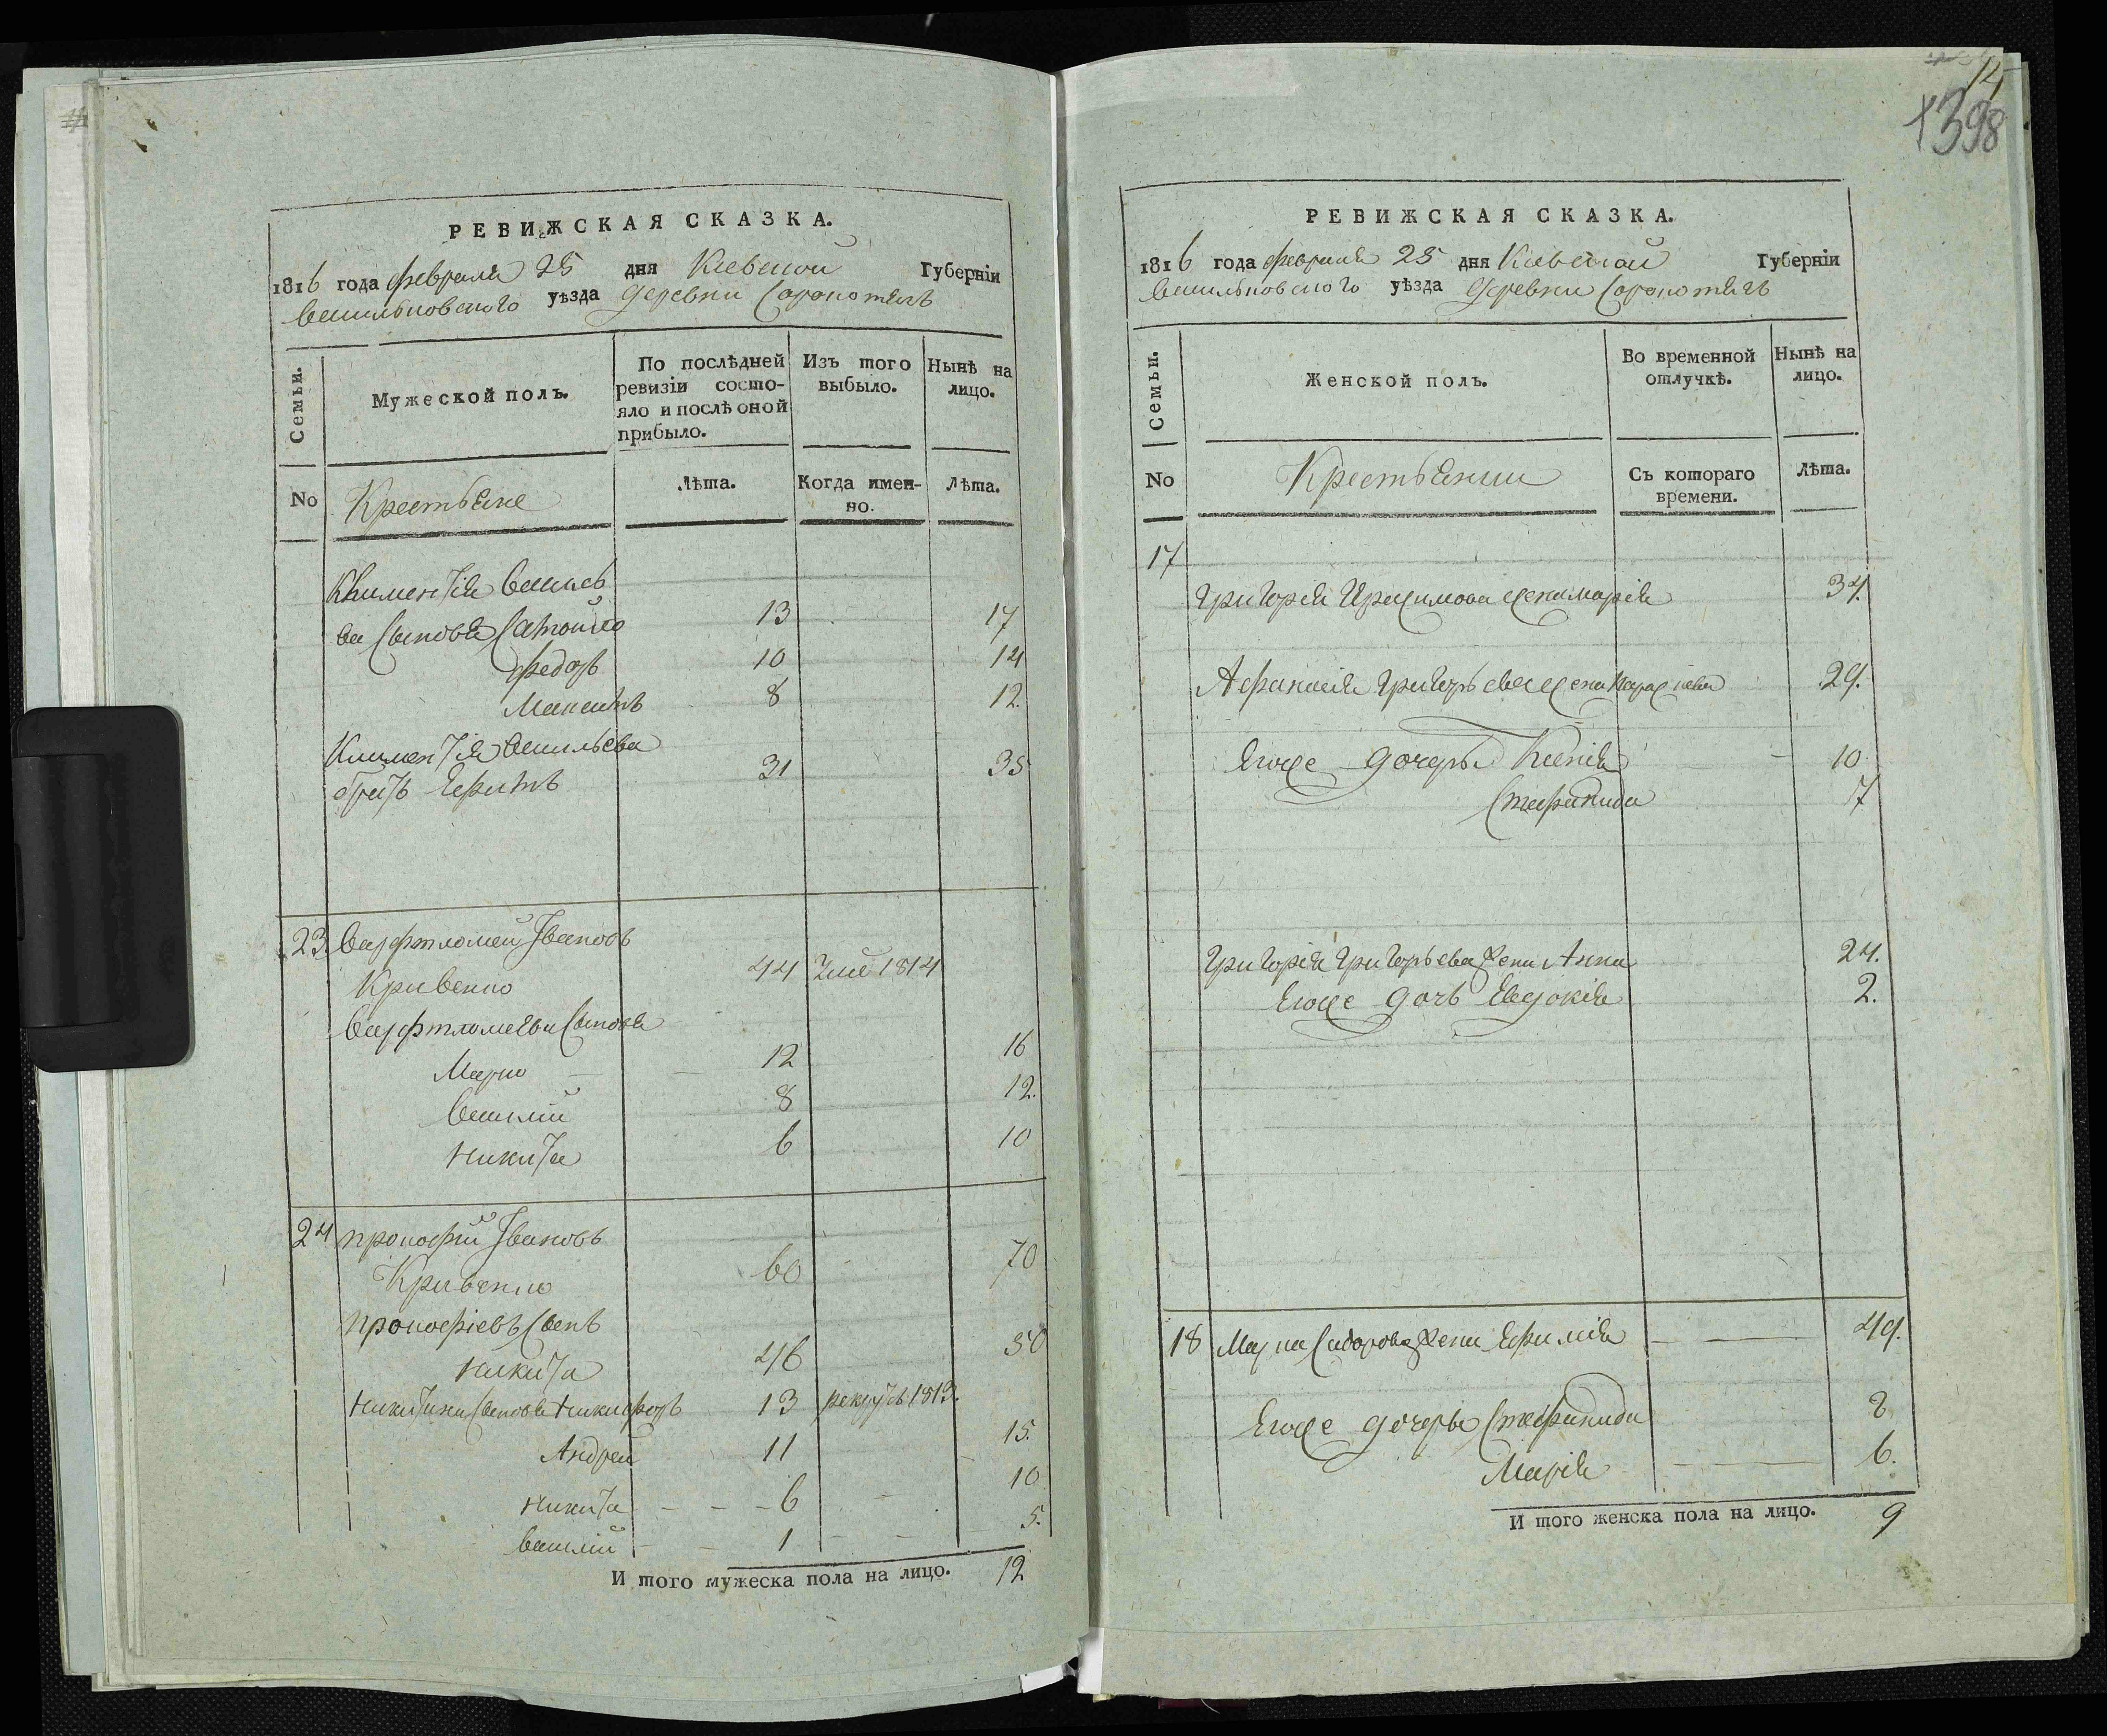 РЕВИЖСКАЯ СКАЗКА.
1816 года февраля 25 дня Киевской Губерніи
Васильковского уѣзда деревни Соропотягъ
Семьи.
Мужеской полъ.
По послѣдней ревизіи состояло и послѣ оной прибыло.
Изъ того выбыло.
Нынѣ на лицо.
No
Крестьяне
Лѣта.
Когда именно.
Лѣта.
Климентія Василье
ва сыновья
13 17
Федоръ 10 14
8 12.
Климентія Васильева
братъ 31 35
23. Варфтломей Ивановъ
Кривенко 44 1814
Варфтломеевы сыновья
Марко 12 16
Василій 8 12.
Никита 6 10
24 Прокофій Ивановъ
Кривенко 60 70
Прокофіевъ сынъ
Никита 46 50
Никитины сыновья Никифоръ 13 рекрутъ 1813.
Андрей 11 15.
Никита 6 10
Василій 1 5.
И того мужеска пола на лицо. 12
14
398
РЕВИЖСКАЯ СКАЗКА.
1816 года февраля 25 дня Киевской Губерніи
Васильковского уѣзда деревни Соропотягъ
Семьи.
Женской полъ.
Во временной отлучкѣ.
Нынѣ на лицо.
No
Крестьянки
Съ котораго времени.
Лѣта.
17
Григорія Герасимова жена Марія 34.
Афанасія Григорьева жена 29.
Егоже дочеры Ксенія 10
Стефанида 7
Григорія Григорьева жена Анна 24.
Егоже дочь Евдокія 2.
18 Марка Сидорова жена Ефимія 49.
Егоже дочеры Стефанида 8
Марія 6.
И того женска пола на лицо. 9